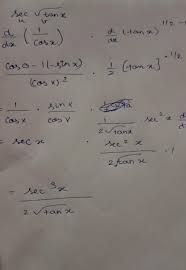 sec √tanx
u v
d/dx (1/cosx) · d/dx (tanx)^1/2 -
cos0 - 1(-sinx)/(cosx)² · 1/2 [tanx]^-1/2
= 1/cosx · sinx/cosx · 1/2√tanx sec²x d
= sec x · sec²x/2√tanx · 1
= sec³x/2√tanx